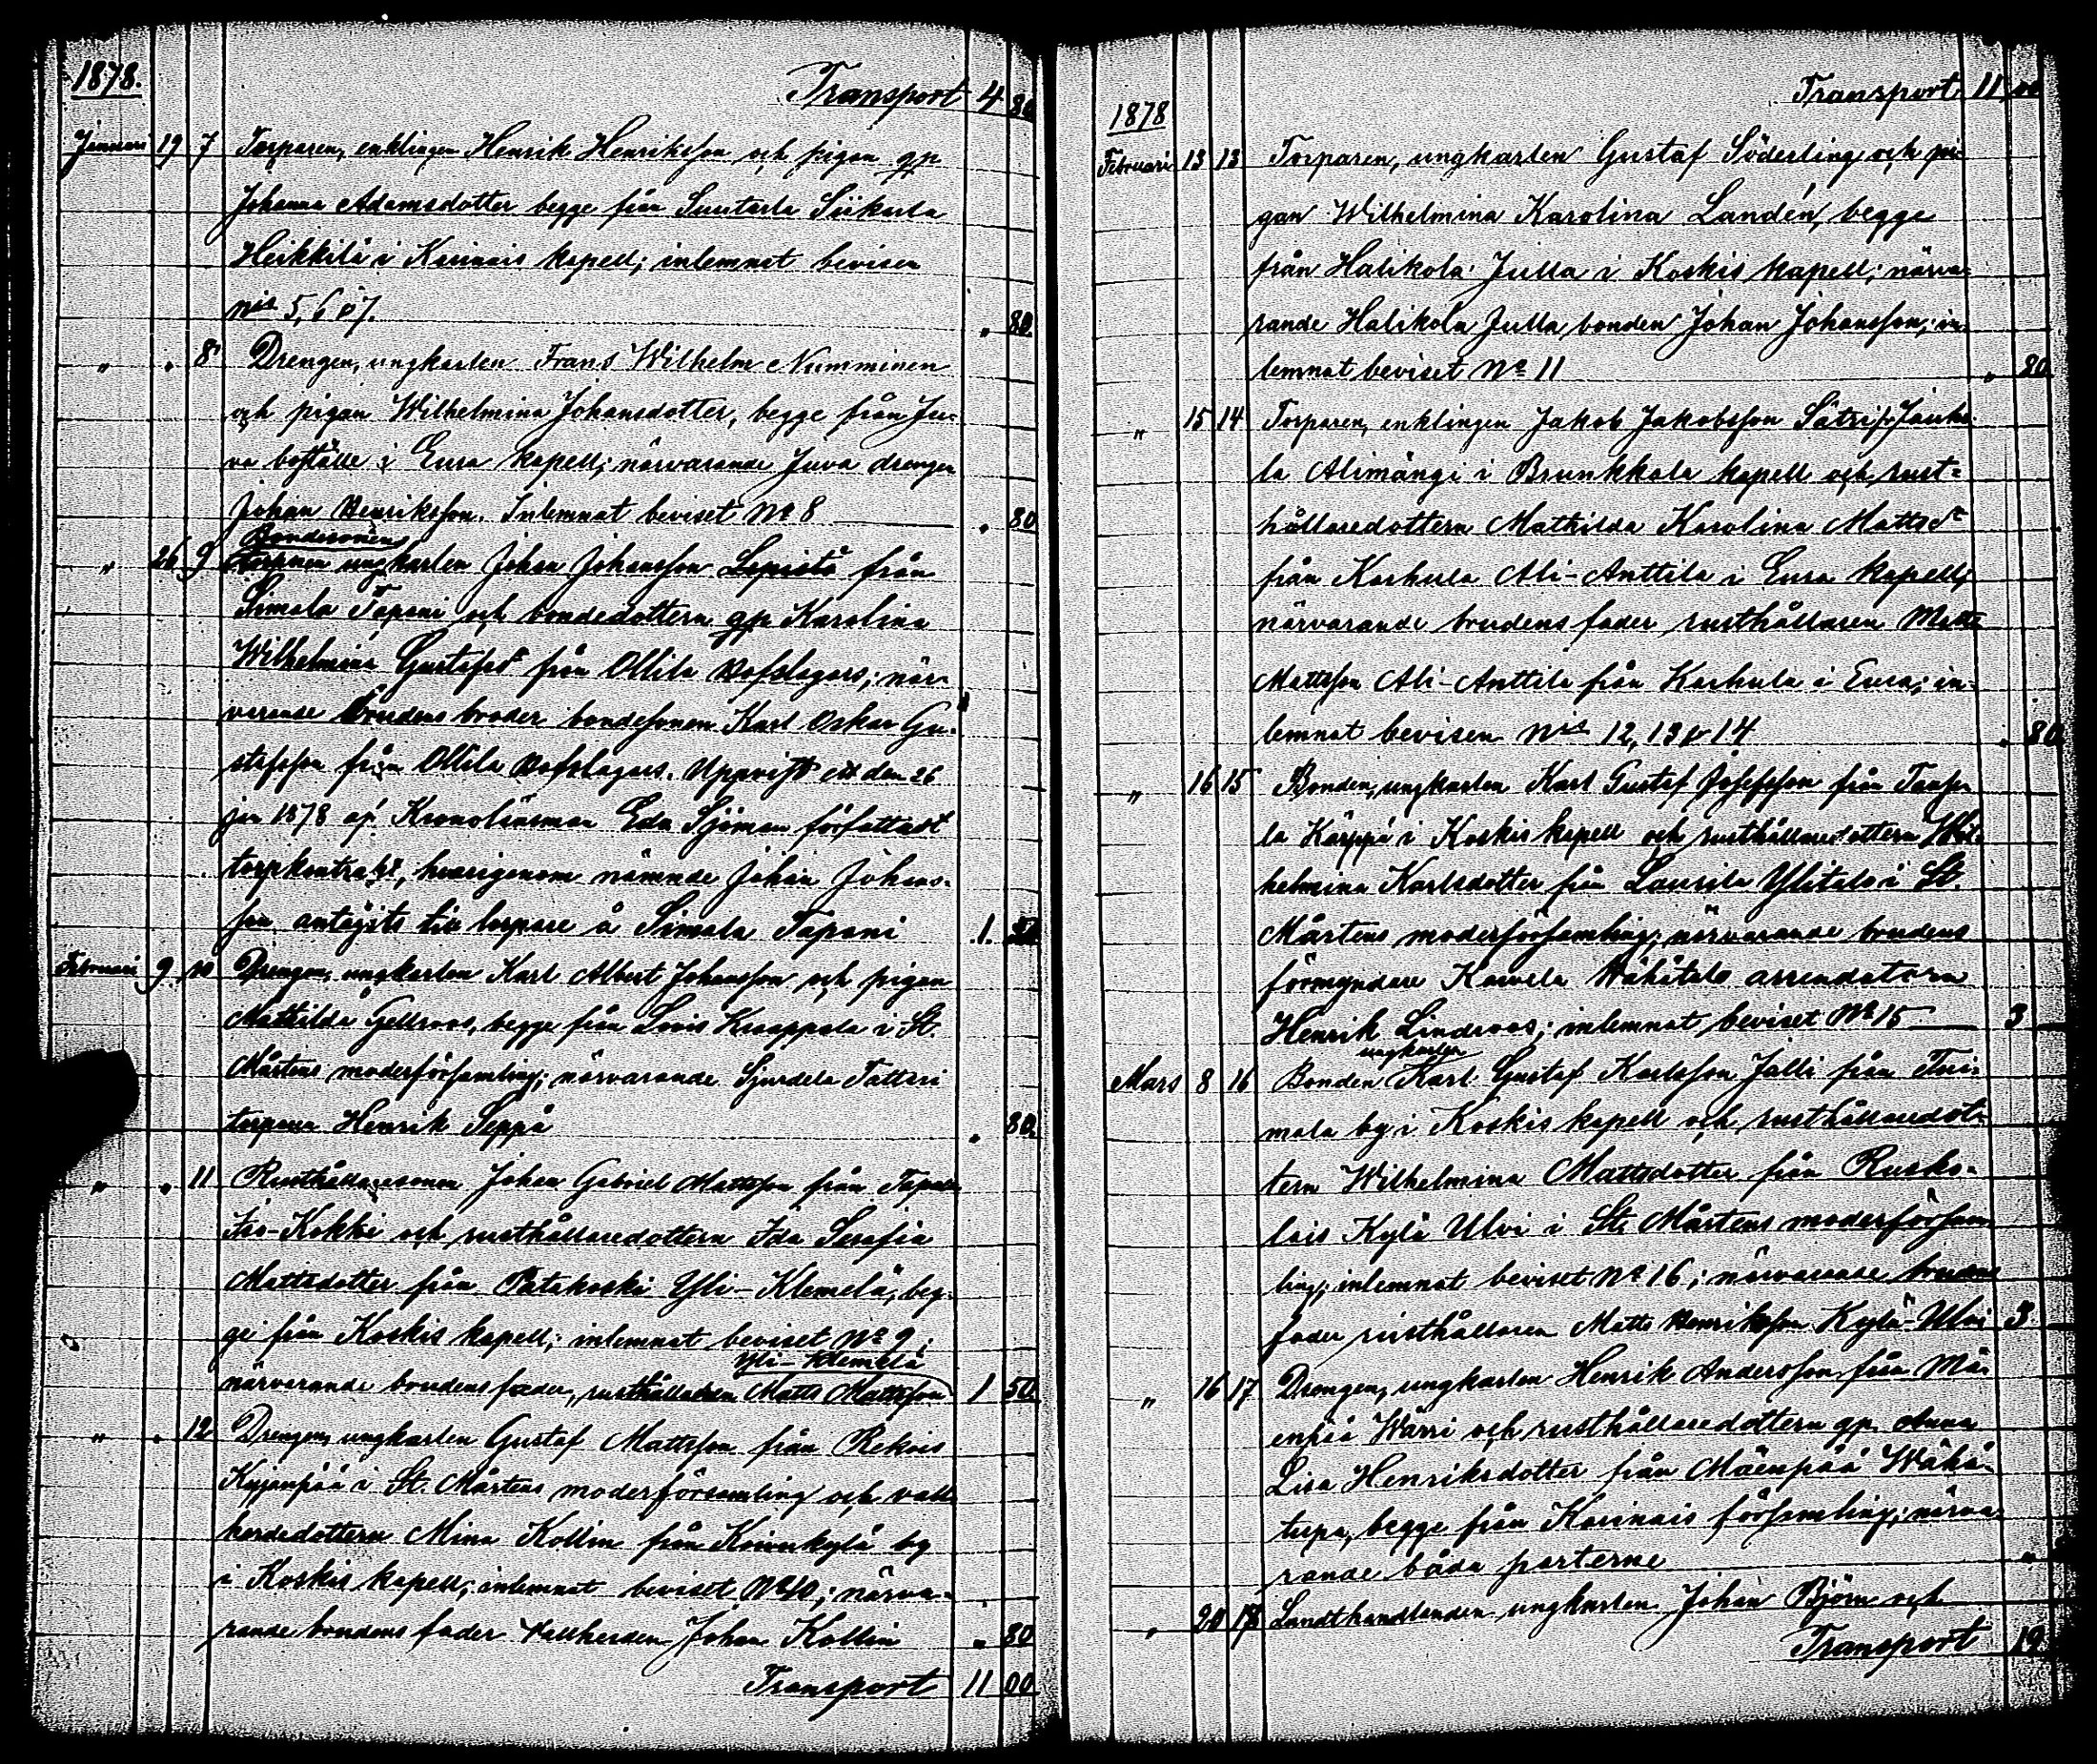 1878.
Transport 4 80
Januari 19 7 Torparen, enklingen Henrik Henriksson och pigan gp
Johanna Adamsdotter begge från Suutarla Siikarla
Heikkilä i Karinais kapell; inlemnat bevisen
nis 5, 6 o 7. „ 80
„ „ 8 Drengen, ungkarlen Frans Wilhelm Numminen
och pigan Wilhelmina Johansdotter, begge från Ju-
va boställe i Eura kapell; närvarande Juva drengen
Johan Henriksson. Inlemnat beviset No 8 „ 80
Bondesonen
„ 26 9 ungkarlen Johan Johansson Lepistö från
Simala Tapani och bondedottern gp Karolina
Wilhelmina Gustafsdr från Ollila Hofslagars; när-
varande brudens broder bondesonen Karl Oskar Gu-
stafsson från Ollila Hofslagars. Uppvist ett den 26
jan 1878 af Kronolänsman Edv Sjöman författadt
torpkontrakt, hvarigenom nämnde Johan Johans-
son antagits till torpare å Simala Tapani 1. 50
Februari 9 10 Drengen, ungkarlen Karl Albert Johansson och pigan
Mathilda Gellroos, begge från Sovis Knaappala i St.
Mårtens moderförsamling; närvarande Sjurdela Tattari
torparen Henrik Seppä „ 80.
„ „ 11 Rusthållaresonen Johan Gabriel Mattsson från Tapala
Iso-Kokki och rusthållaredottern Ida Serafia
Mattsdotter från Patakoski Yli-Klemelä, beg-
ge från Koskis kapell; inlemnat beviset No 9;
Yli-Klemelä
närvarande brudens fader, rusthållaren Matts Mattsson 1 50
„ „ 12 Drengen, ungkarlen Gustaf Mattsson från Rekois
Kyjanpää i St. Mårtens moderförsamling och vall-
herdedottern Mina Kollin från Koivukylä by
i Koskis kapell; inlemnat beviset No 10; närva-
rande brudens fader vallherden Johan Kollin „ 80
Transport 11 00
Transport 11,00
1878
Februari 13 13 Torparen, ungkarlen Gustaf Söderling och pi-
gan Wilhelmina Karolina Landén, begge
från Halikola Julla i Koskis kapell; närva-
rande Halikola Julla bonden Johan Johansson; in-
lemnat beviset No 11 „ 80
„ 15 14 Torparen, enklingen Jakob Jakobsson Sätri fr Jauhe-
la Alimängi i Brunkkala kapell och rust-
hållaredottern Mathilda Karolina Mattsdr
från Karhula Ali-Anttila i Eura kapell;
närvarande brudens fader rusthållaren Matts
Mattsson Ali-Anttila från Karhula i Eura; in-
lemnat bevisen Nis 12, 13 & 14 „ 80
„ 16 15 Bonden, ungkarlen Karl Gustaf Josefsson från
la Kärppä i Koskis kapell och rusthållaredottern Wil-
helmina Karlsdotter från Laurila Ylitalo i St.
Mårtens moderförsamling; närvarande brudens
förmyndare Wähätalo arrendatorn
Henrik Lindroos; inlemnat beviset No 15 3
ungkarlen
Mars 8 16 Bonden Karl Gustaf Karlsson Jalli från Tui-
mala by i Koskis kapell och rusthållaredot-
tern Wilhelmina Mattsdotter från Rusko-
lais Kylä Ulvi i St. Mårtens moderförsam-
ling; inlemnat beviset No 16; närvarande brudens
fader rusthållaren Matts Henriksson Kylä-Ulvi 3
„ 16 17 Drengen, ungkarlen Henrik Andersson från Mä-
enpää Wärri och rusthållaredottern gp. Anna
Lisa Henriksdotter från Mäenpää Wähä-
tupa, begge från Karinais församling; närva-
rande båda parterne „
„ 20 18 Landthandlanden ungkarlen Johan Björn och
Transport 19